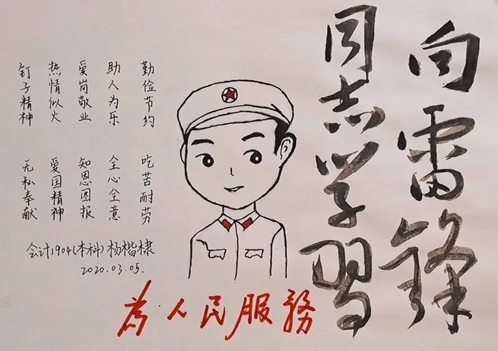 向雷锋
同志学习
勤俭节约
助人为乐
爱岗敬业
热情似火
钉子精神
吃苦耐劳
全心全意
知恩图报
爱国精神
无私奉献
会计1904(本科)杨楷棣
2020.03.05.
为人民服務